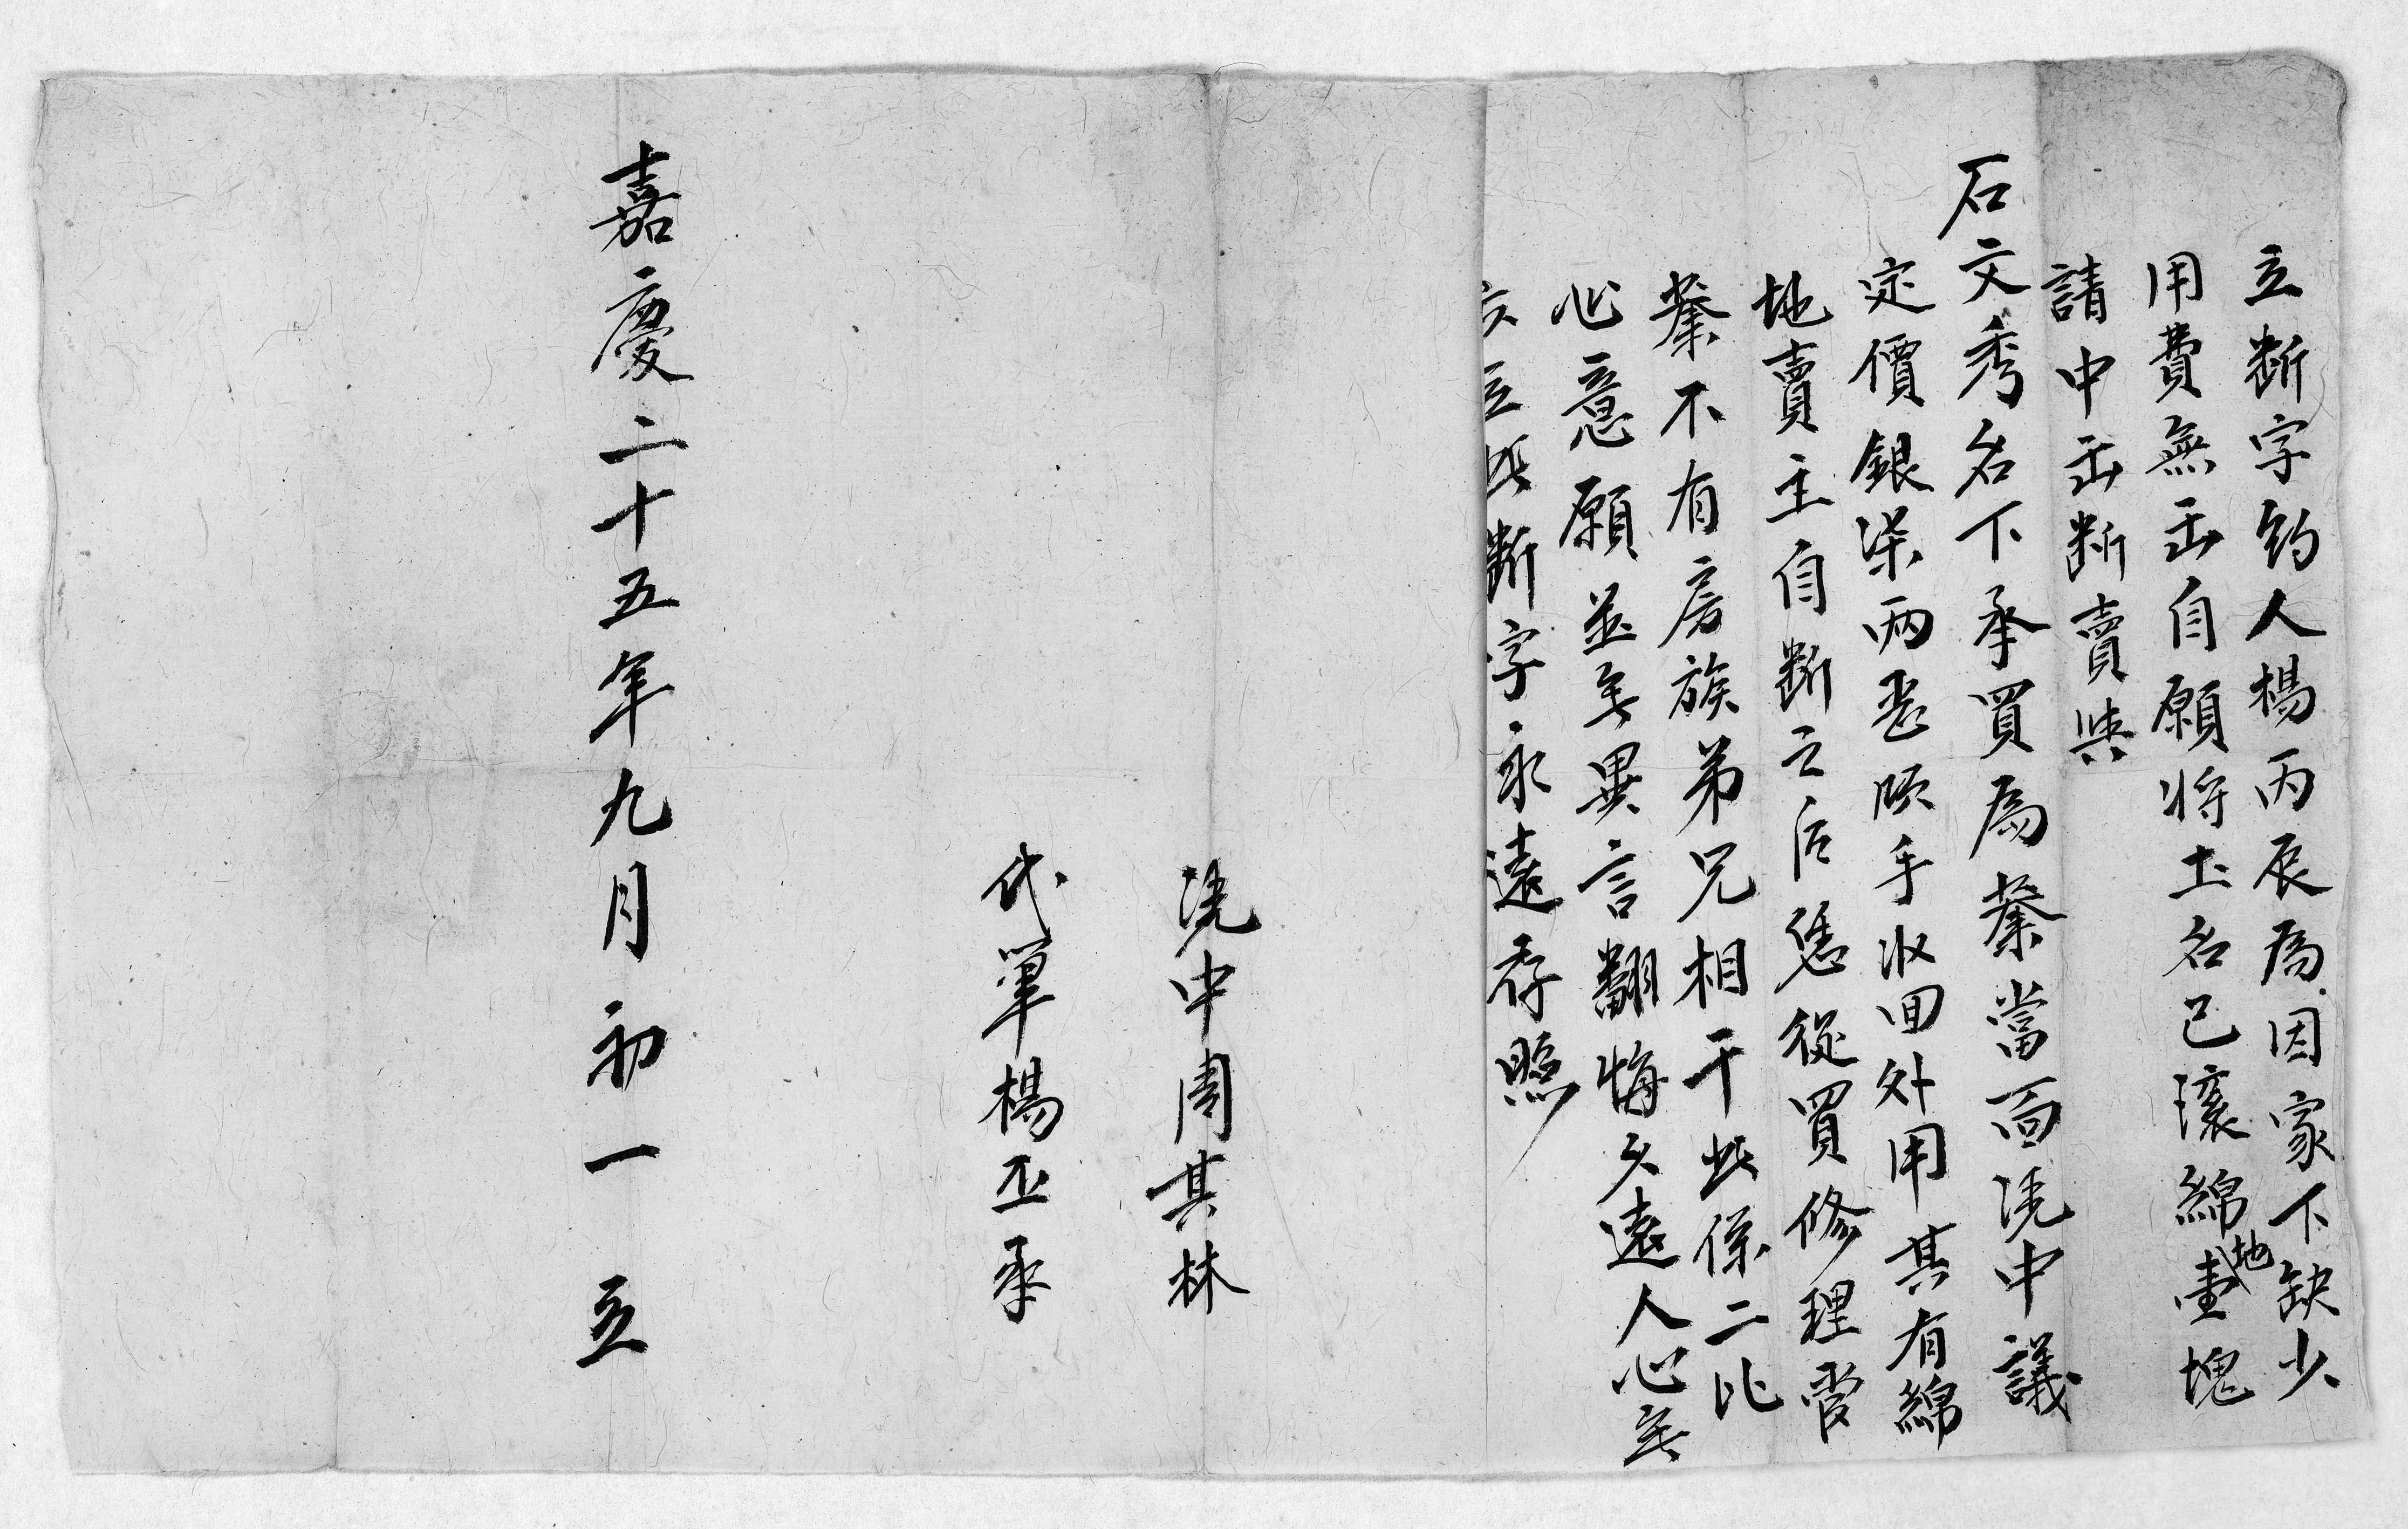 立断字約人楊丙辰為因家下缺少
用費無出自願将土名己瀼綿地壹塊
請中出断賣與
石文秀名下承買為業當面凴中議
定價銀柒兩恶順手收回外用其有綿
地賣主自断之后凴從買修理管
業不有房族弟兄相干此係二比
心意願並無異言翻悔久遠人心無
立此断字永遠存照
凴中周其林
代筆楊丕承
嘉慶二十五年九月初一立